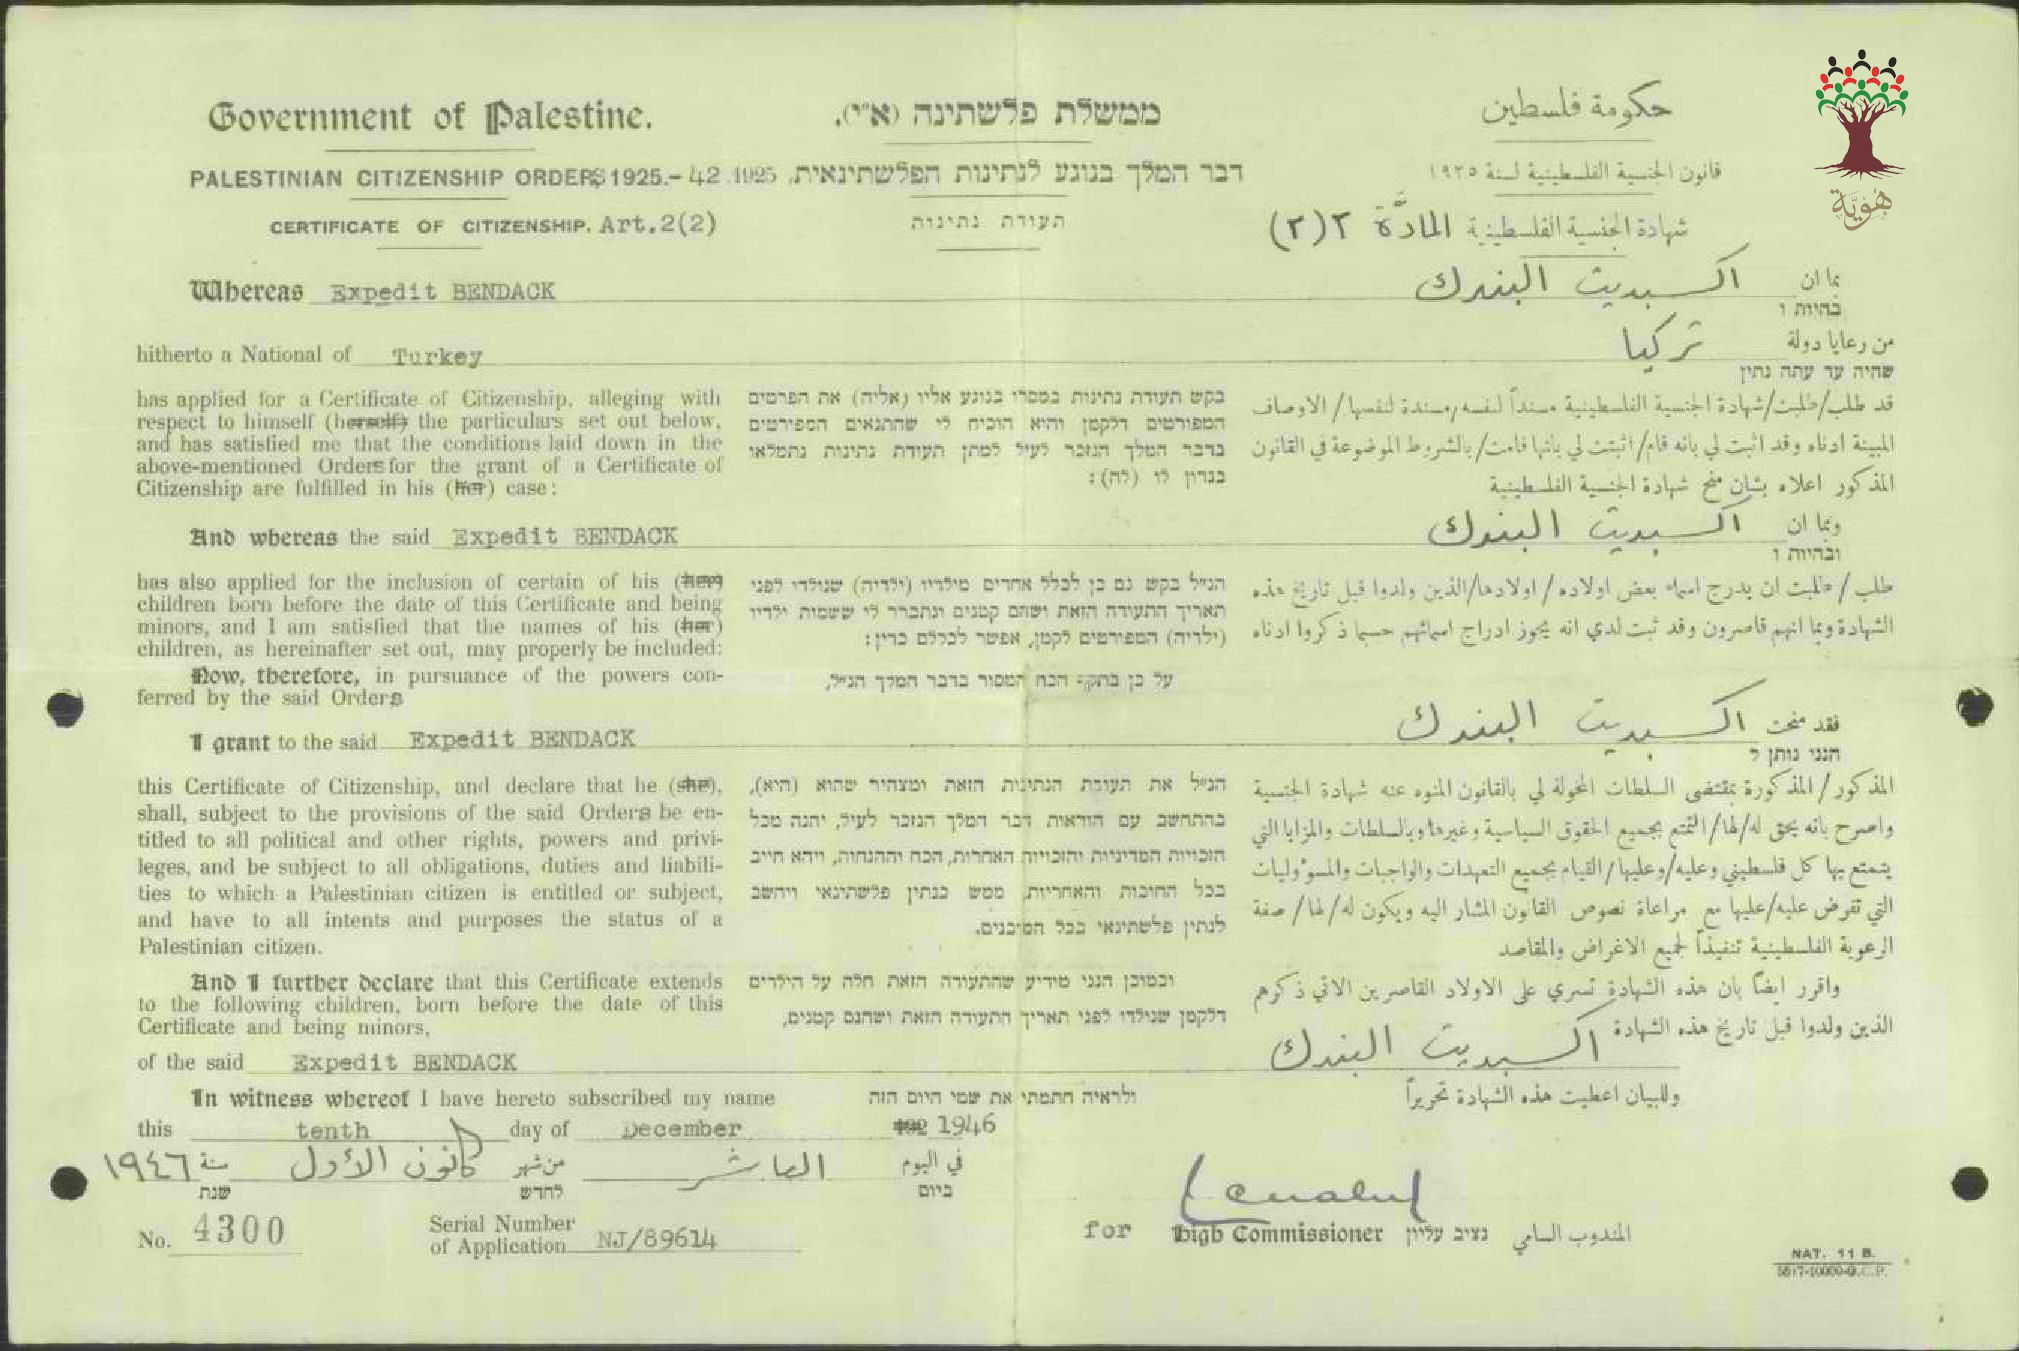 Government of Palestine.
ממשלת פלשתינה (א"י).
حكومة فلسطين
PALESTINIAN CITIZENSHIP ORDERS 1925.-42
דבר המלך בנוגע לנתינות הפלשתינאית, 1925
قانون الجنسية الفلسطينية لسنة ١٩٢٥
هُوِيَّة
CERTIFICATE OF CITIZENSHIP. Art.2(2)
תעודת נתינות
شهادة الجنسية الفلسطينية المادَّة ٢(٢)
Whereas Expedit BENDACK
بما ان اكسبديت البندك
בהיות ו
hitherto a National of Turkey
من رعايا دولة تركيا
שהיה עד עתה נתין
has applied for a Certificate of Citizenship, alleging with
respect to himself (herself) the particulars set out below,
and has satisfied me that the conditions laid down in the
above-mentioned Orders for the grant of a Certificate of
Citizenship are fulfilled in his (her) case:
בקש תעודת נתינות במסרו בנוגע אליו (אליה) את הפרטים
המפורטים דלקטן והוא הוכיח לי שהתנאים המפורטים
בדבר המלך הנזכר לעיל למתן תעודת נתינות נתמלאו
בנדון לו (לה):
قد طلب/طلبت/شهادة الجنسية الفلسطينية مسنداً لنفسه/مسندة لنفسها/الاوصاف
المبينة ادناه وقد اثبت لي بانه قام/اثبتت لي بانها قامت/بالشروط الموضوعة في القانون
المذكور اعلاه بشان منح شهادة الجنسية الفلسطينية
And whereas the said Expedit BENDACK
وبما ان اكسبديت البندك
ובהיות ו
has also applied for the inclusion of certain of his (her)
children born before the date of this Certificate and being
minors, and I am satisfied that the names of his (her)
children, as hereinafter set out, may properly be included:
הנ"ל בקש גם כן לכלל אחדים מילדיו (ילדיה) שנולדו לפני
תאריך התעודה הזאת ושהם קטנים ונתברר לי ששמות ילדיו
(ילדיה) המפורטים לקטן, אפשר לכללם כדין:
طلب/طلبت ان يدرج اسماء بعض اولاده/اولادها/الذين ولدوا قبل تاريخ هذه
الشهادة وبما انهم قاصرون وقد ثبت لدي انه يجوز ادراج اسمائهم حسبما ذكروا ادناه
Now, therefore, in pursuance of the powers con-
ferred by the said Orders
על כן בתקף הכח המסור בדבר המלך הנ"ל,
I grant to the said Expedit BENDACK
فقد منحت اكسبديت البندك
הנני נותן ל
this Certificate of Citizenship, and declare that he (she),
shall, subject to the provisions of the said Orders be en-
titled to all political and other rights, powers and privi-
leges, and be subject to all obligations, duties and liabili-
ties to which a Palestinian citizen is entitled or subject,
and have to all intents and purposes the status of a
Palestinian citizen.
הנ"ל את תעודת הנתינות הזאת ומצהיר שהוא (היא),
בהתחשב עם הוראות דבר המלך הנזכר לעיל, יהנה מכל
הזכויות המדיניות והזכויות האחרות, הכח וההנחות, ויהא חייב
בכל החובות והאחריות, ממש כנתין פלשתינאי ויחשב
לנתין פלשתינאי בכל המובנים.
المذكور/المذكورة بمقتضى السلطات المخولة لي بالقانون المنوه عنه شهادة الجنسية
واصرح بانه يحق له/لها/التمتع بجميع الحقوق السياسية وغيرها وبالسلطات والمزايا التي
يتمتع بها كل فلسطيني وعليه/وعليها/القيام بجميع التعهدات والواجبات والمسؤوليات
التي تفرض عليه/عليها مع مراعاة نصوص القانون المشار اليه ويكون له/لها/صفة
الرعوية الفلسطينية تنفيذاً لجميع الاغراض والمقاصد
And I further declare that this Certificate extends
to the following children, born before the date of this
Certificate and being minors,
וכמוכן הנני מודיע שהתעודה הזאת חלה על הילדים
דלקטן שנולדו לפני תאריך התעודה הזאת ושהנם קטנים,
واقرر ايضاً بان هذه الشهادة تسري على الاولاد القاصرين الاتي ذكرهم
الذين ولدوا قبل تاريخ هذه الشهادة اكسبديت البندك
of the said Expedit BENDACK
In witness whereof I have hereto subscribed my name
ולראיה חתמתי את שמי היום הזה
وللبيان اعطيت هذه الشهادة تحريراً
this tenth day of December 192 1946
في اليوم العاشر من شهر كانون الأول سنة ١٩٤٦
ביום לחדש שנת
No. 4300
Serial Number
of Application NJ/89614
for High Commissioner נציב עליון المندوب السامي
NAT. 11 B.